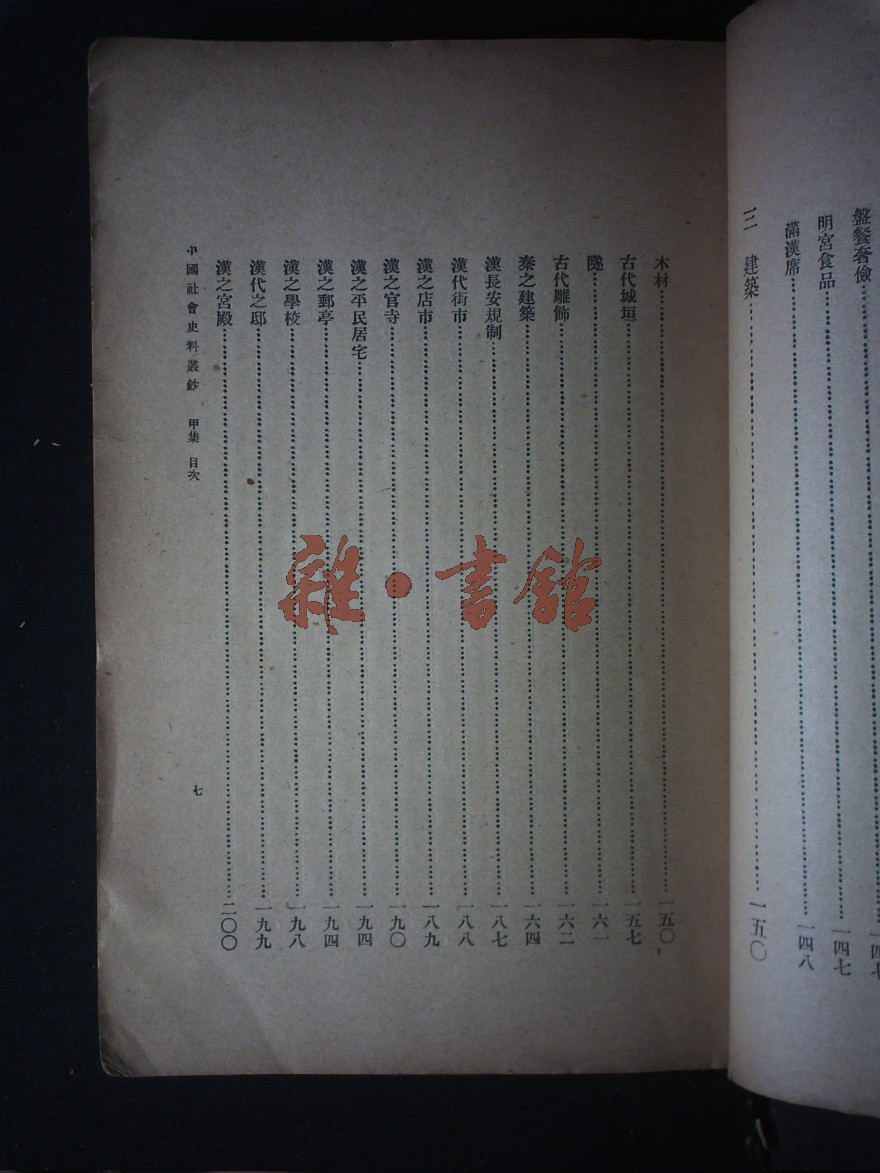 盤餐奢儉……一四七
明宮食品……一四七
滿漢席……一四八
三 建築……一五〇
木材……一五〇
古代城垣……一五七
隧……一六一
古代雕飾……一六二
秦之建築……一六四
漢長安規制……一八七
漢代街市……一八八
漢之店市……一八九
漢之官寺……一九〇
漢之平民居宅……一九四
漢之郵亭……一九四
漢之學校……一九八
漢代之邸……一九九
漢之宮殿……二〇〇
中國社會史料叢鈔 甲集 目次
七
雜·書館